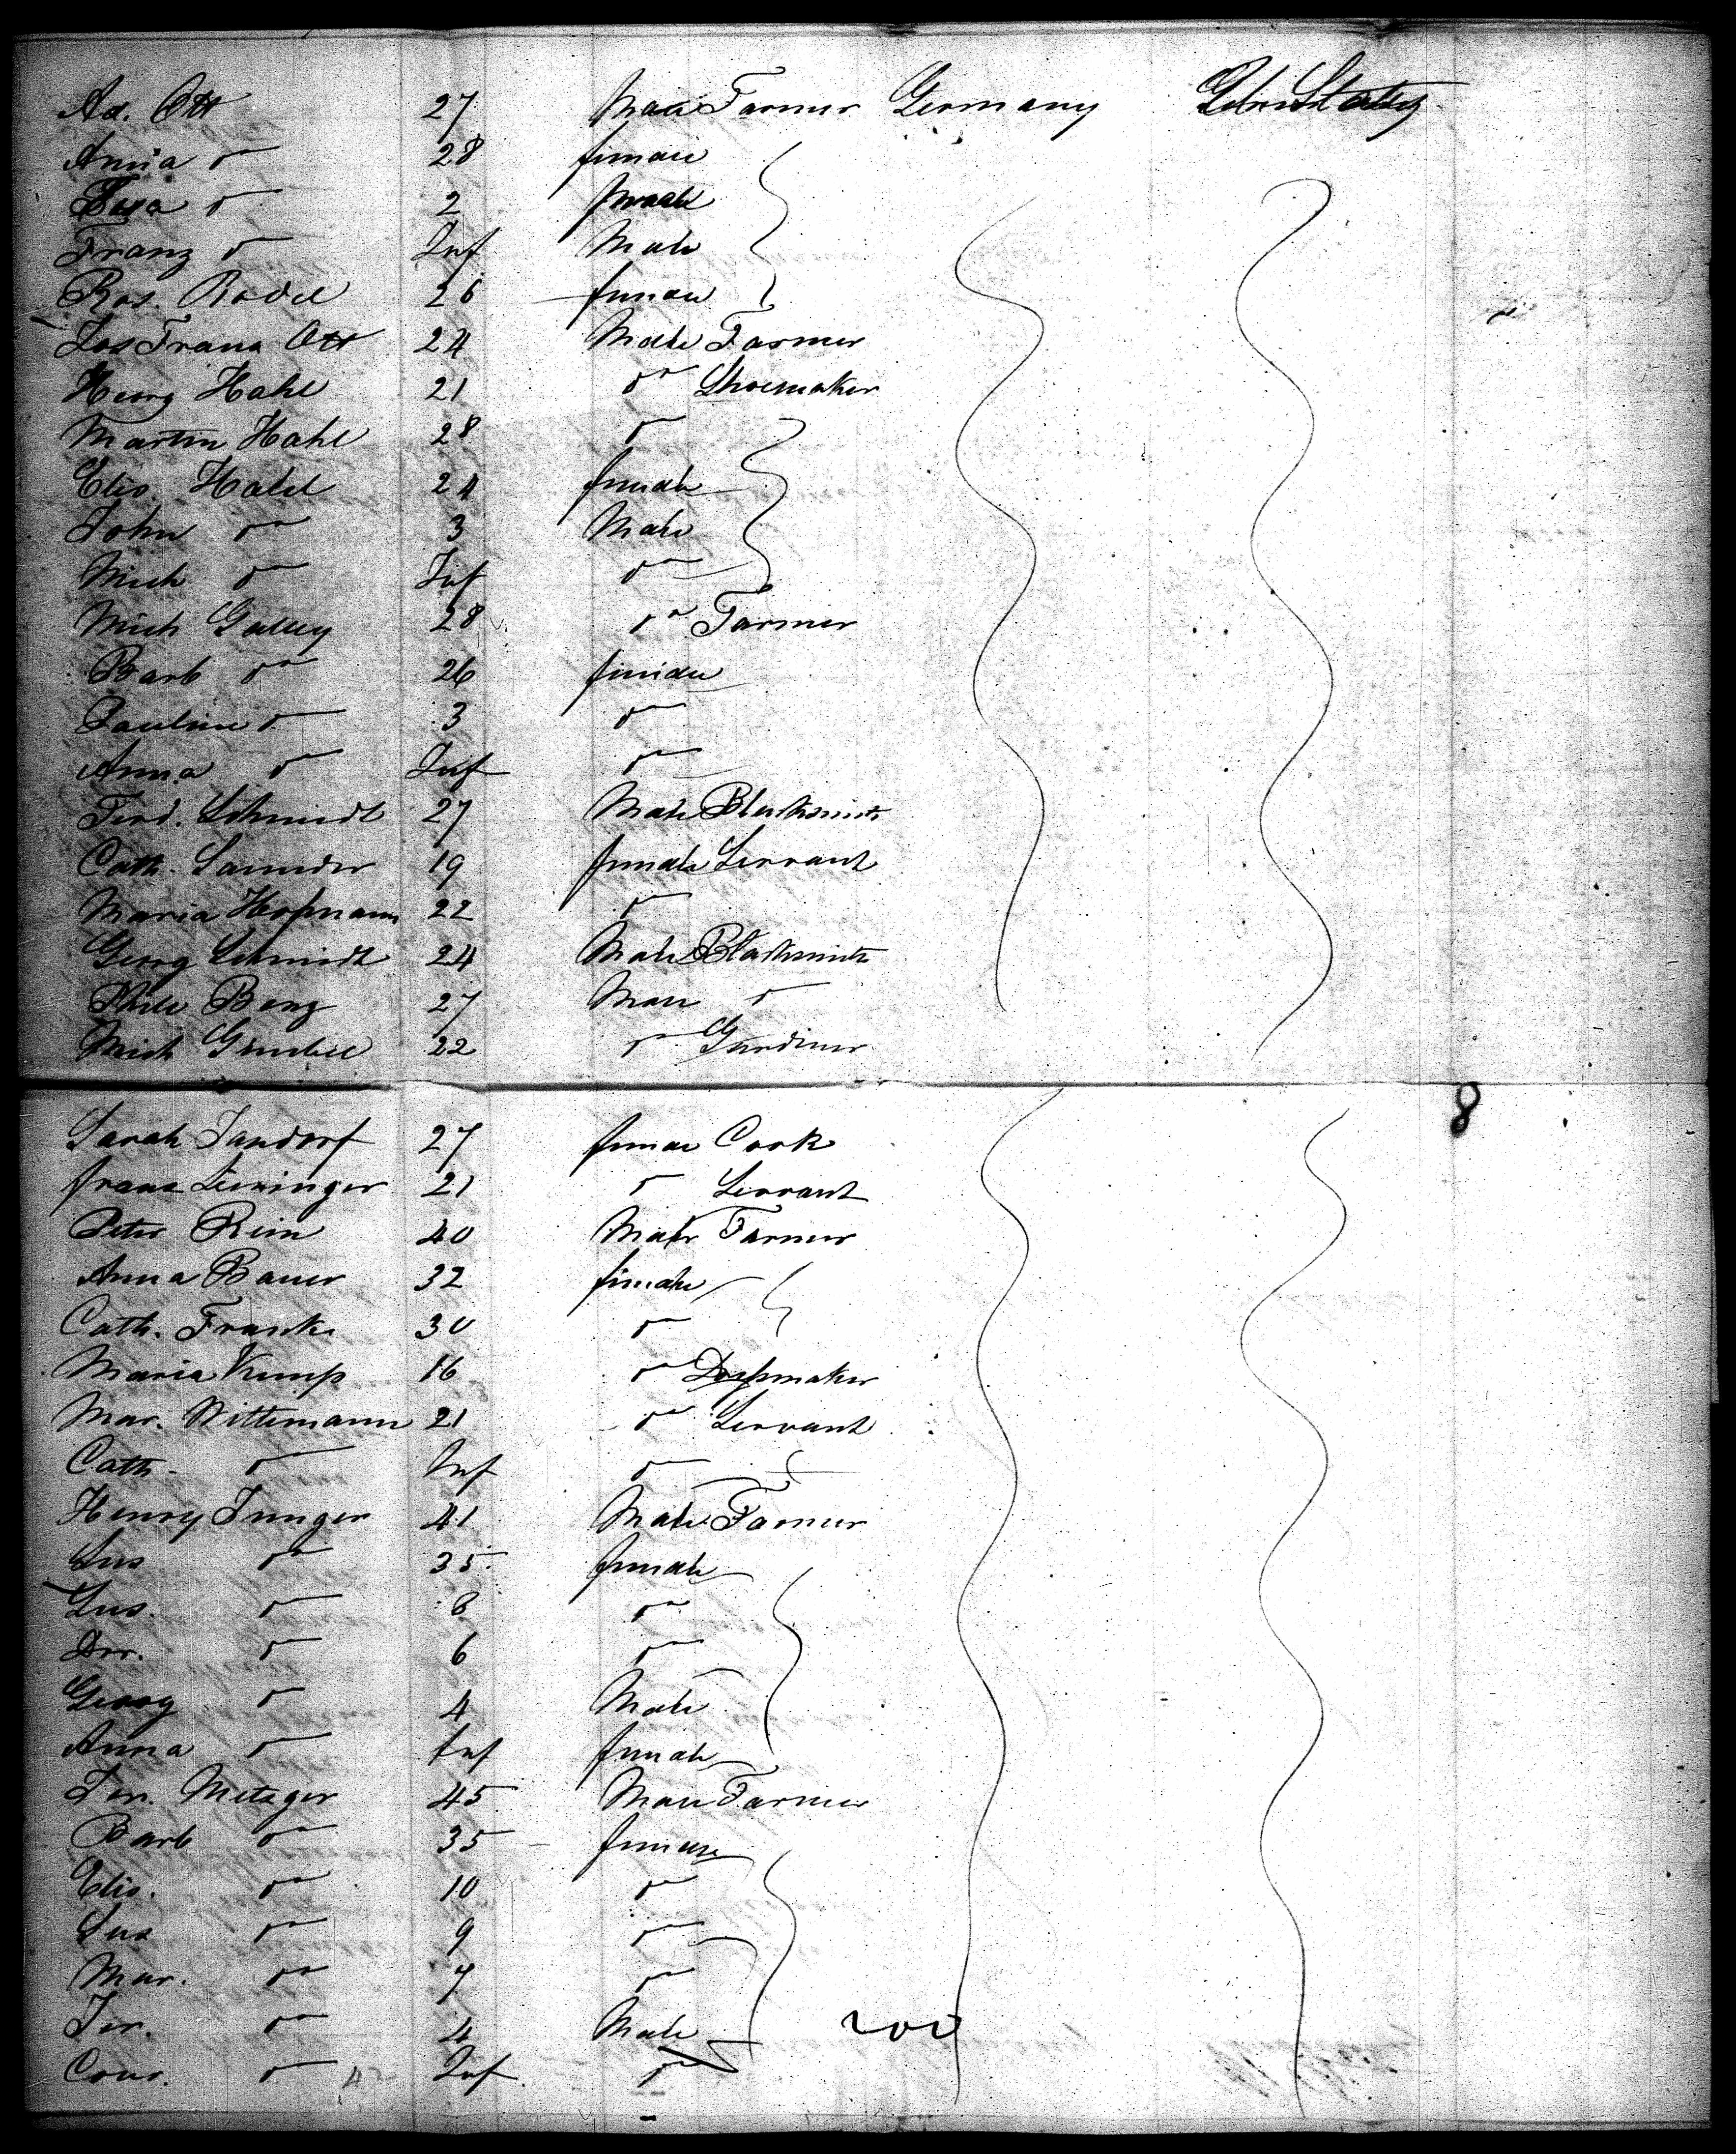 Ad. Ott 27 Male Farmer Germany
Anna do 28 female
do 2 female
Franz do Inf Male
Ros. Rodel 26 female
Jos Franz Ott 24 Male Farmer
Georg Hahl 21 do Shoemaker
Martin Hahl 28 do
Elis. Hahl 24 female
John do 3 Male
Mich do Inf do
Mich Galley 28 do Farmer
Barb do 26 female
Pauline do 3 do
Anna do Inf do
Ferd. Schmidt 27 Male Blacksmith
Cath. 19 female Servant
Maria Hofmann 22 do
Georg Schmidt 24 Male Blacksmith
Phil Benz 27 Male do
Mich 22 do Gardiner
8
Sarah Jandorf 27 female Cook
Franz Leininger 21 do Servant
Peter Rein 40 Male Farmer
Anna Bauer 32 female
Cath. Frank 30 do
Maria Kemp 16 do Dressmaker
Mar. Wittemann 21 do Servant
Cath. do Inf do
Henry Junger 41 Male Farmer
Sus do 35 female
Sus. do 8 do
Dor. do 6 do
Georg do 4 Male
Anna do Inf female
Jer. Metzger 45 Male Farmer
Barb do 35 female
Elis. do 10 do
Sus do 9 do
Mar. do 7 do
Jer. do 4 Male
Conr. do 42 Inf do